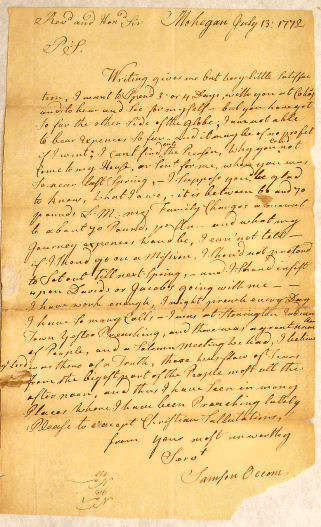 Rev.d and Hon.d Sir Mohegan July 13: 1772
P.S.
Writing gives me but very little Satisfac
tion, I want to Spend 3 or 4 Days, with you at Cohos
and to hear and See for myself - but you have got
So far the other Side of the Globe; I am not able
to bear Expences So far - and it may be of no profit
if I went, I can't find out the Reason, Why you not
come to my House, or Sent for me, when you was
So near last Spring, - I Suppose you'd be glad
to know, What I owe, - it is between 60 and 70
pounds L:M: my Family Charges amount
to about 70 Pounds, pr An.. and what my
Journey expences wou'd be, I can not tell -
if I Shou'd go on a Mission, I Shou'd not pretend
to Set out till next Spring, - and I Shou'd insist
upon David's or Jacob's going with me -
I have work enough, I might preach every Day
I have So many Calls - I was at Stonington Indian
Town Preaching, and there was a great number
of People, and a Solemn meeting we had, I believe
was there of a Truth, there was flow of Tears
from the bigest part of the People most all the
after noon, and thus I have Seen in many
Places Where I have been Preaching lately
Please to except Christian Sallutations,
from your most unworthy
Servt
Samson Occom